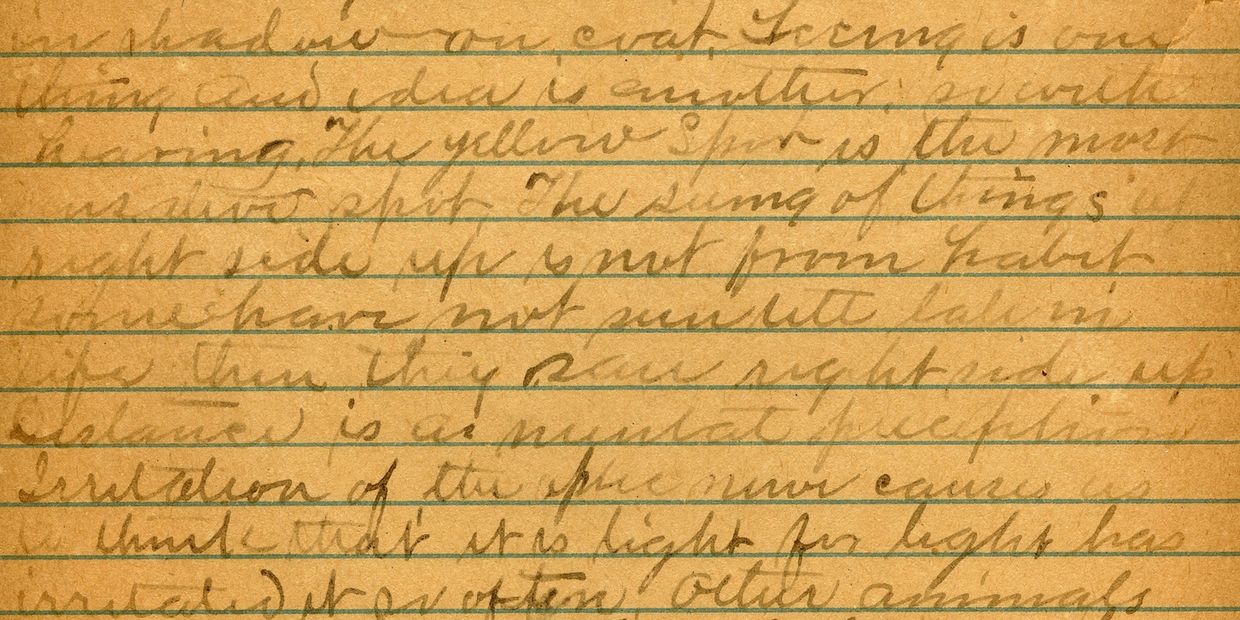 in shadow on coat. Seeing is one
thing and idea is another, so with
hearing. The yellow Spot is the most
sensitive spot. The seeing of things
right side up is not from habit
some have not seen till late in
life then they saw right side up
Distance is a mental preception
Irritation of the optic nerve causes us
to think that it is light for light has
irritated it so often. Other animals